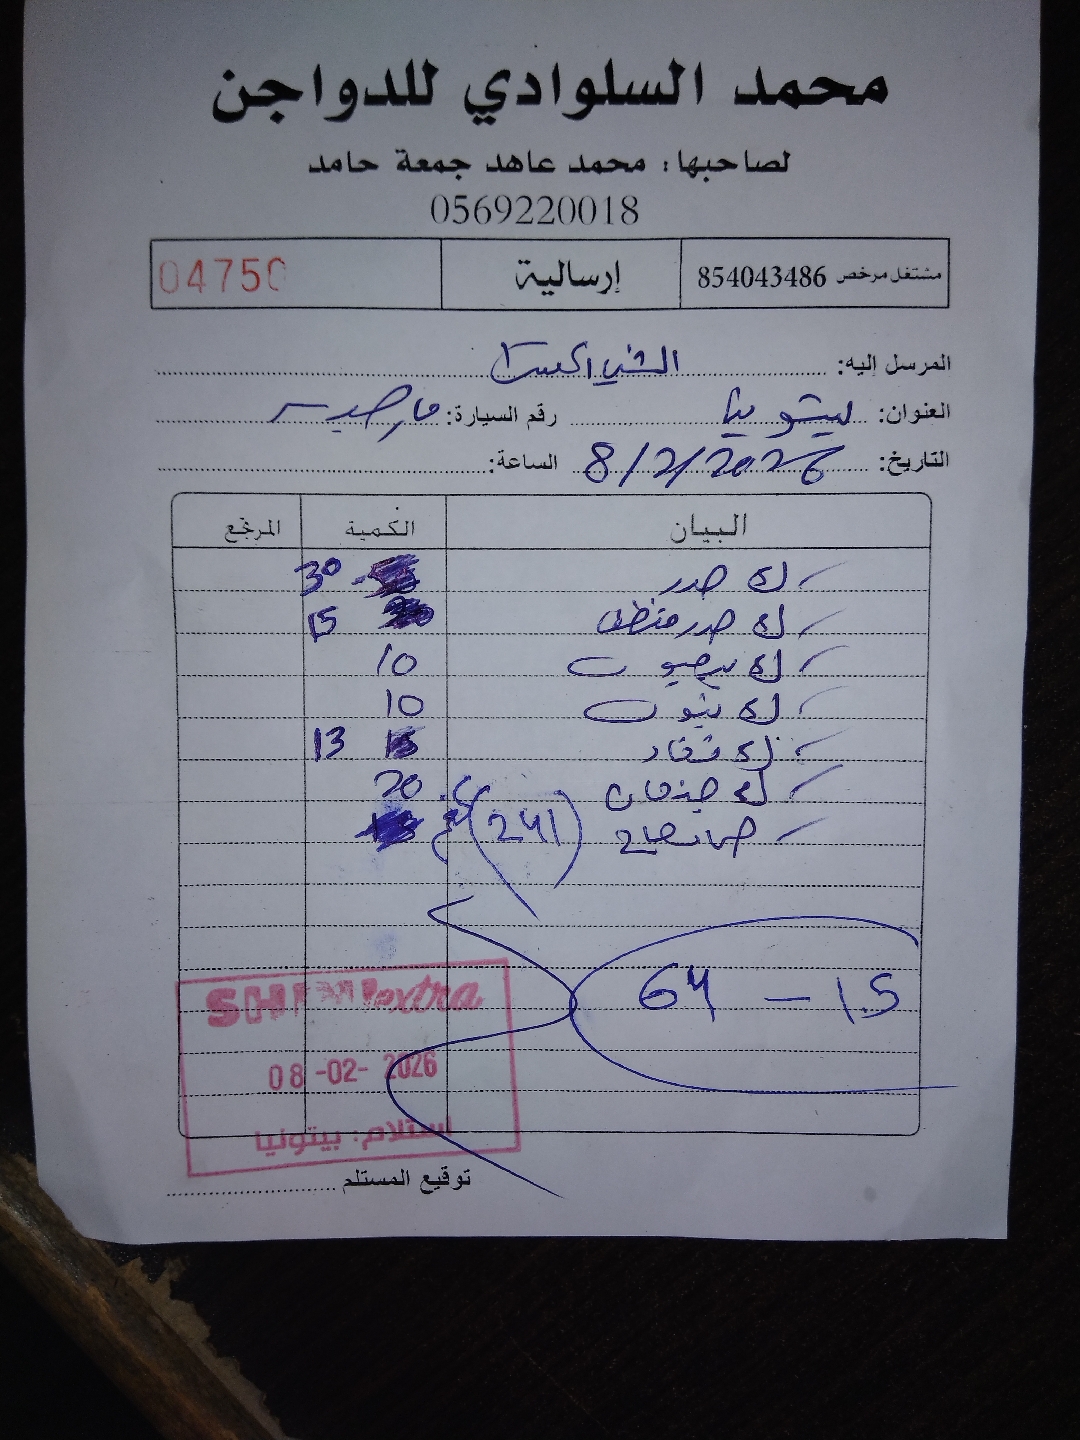 محمد السلوادي للدواجن
لصاحبها: محمد عاهد جمعة حامد
0569220018
مشتغل مرخص 854043486 إرسالية 04750
المرسل إليه: الشني اكسترا
العنوان: بيتونيا رقم السيارة:
التاريخ: 8/2/2026 الساعة:
البيان الكمية المرتجع
ك صدر 30
ك صدر منظف 15
ك 10
ك 10
ك 13
ك 20
(241)
64 - 15
SHINI extra
08-02-2026
استلام: بيتونيا
توقيع المستلم